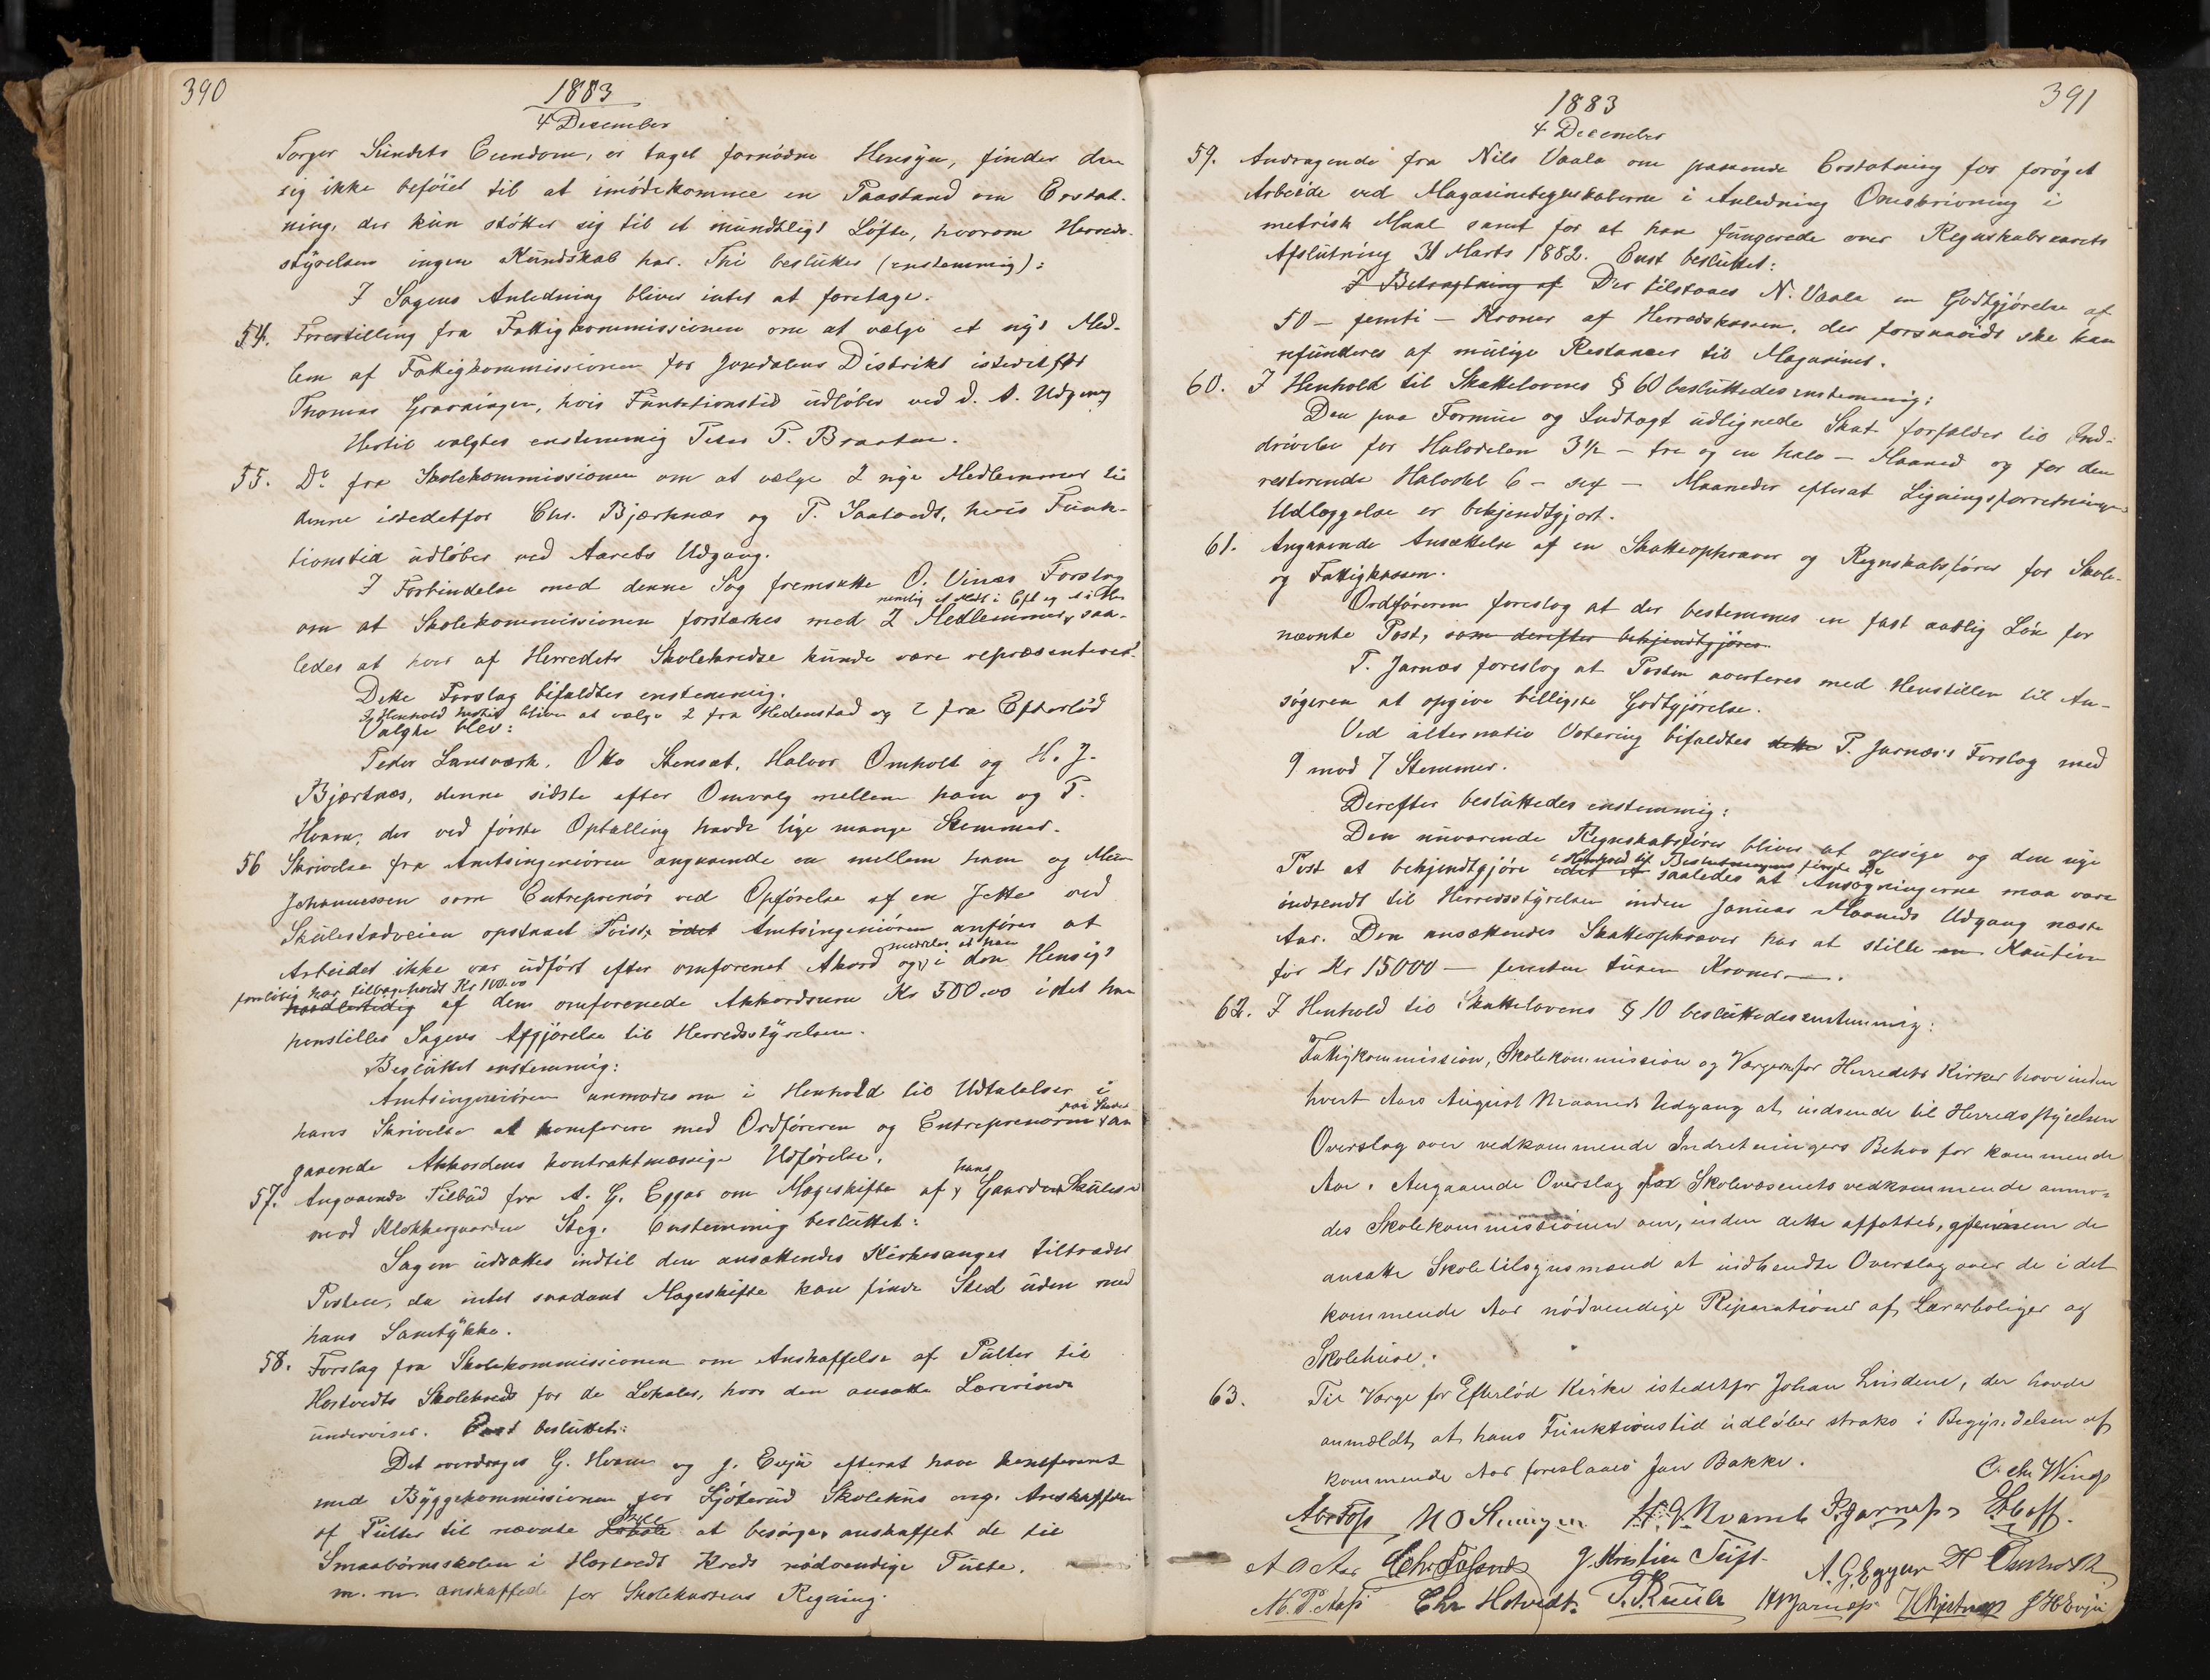 390
1883
4 December
Torger Sundets Eiendom, er taget fornödne Hensyn, finder den
sig ikke beföiet til at imödekomme en Paastand om Erstat-
ning, der kun stötter sig til et mundtligt Löfte, hvorom Herreds-
styrelsen ingen Kundskab har. Thi besluttes (enstemmig):
I Sagens Anledning bliver intet at foretage.
54. Forestilling fra Fattigkommissionen om at vælge et nyt Med-
lem af Fattigkommissionen for Jondalens Distrikt istedetfor
Thomas Gravningen, hvis Funktionstid udlöber ved d. A. Udgang
Hertil valgtes enstemmig Peder P. Braaten.
55. Do fra Skolekommissionen om at vælge 2 nye Medlemmer til
denne istedetfor Chr. Bjærknæs og P. Saatvedt, hvis Funk-
tionstid udlöber ved Aarets Udgang.
I Forbindelse med denne Sag fremsatte O. Vinæs Forslag
nemlig et Medl i Eft og i
om at Skolekommissionen forstærkes med 2 Medlemmer, saa-
ledes at hver af Herredets Skolekredse kunde være repræsenteret.
Dette Forslag bifaldtes enstemmig.
I Henhold hertil bliver at vælge 2 fra Hedenstad og 2 fra Efterlöd
Valgte blev:
Peder Lansværk, Otto Stensæt, Halvor Omholt og H. J.
Bjærknæs, denne sidste efter Omvalg mellem ham og P.
Hvam, der ved förste Optælling havde lige mange Stemmer.
56 Skrivelse fra Amtsingeniören angaaende en mellem ham og
Johannessen som Entreprenör ved Opförelse af en Jette ved
Skulestadveien opstaaet Tvist, idet Amtsingeniören anförer at
meddeler at han
Arbeidet ikke var udfört efter omforenet Akord og i den Hensigt
foreløbig har tilbageholdt Kr 100.00
af den omforenede Akkordsum Kr 500.00 idet han
henstiller Sagens Afgjörelse til Herredsstyrelsen.
Besluttet enstemmig:
Amtsingeniören anmodes om i Henhold til Udtalelser i
paa Stedet
hans Skrivelse at konferere med Ordföreren og Entreprenören an
gaaende Akkordens kontraktmæssige Udförelse.
hans
57. Angaaende Tilbud fra A. G. Eggar om Mageskifte af Gaarden
mod Klokkergaarden Steg. Enstemmig besluttet:
Sagen udsættes indtil den ansættendes Kirkesanger tiltræder
Posten, da intet saadant Mageskifte kan finde Sted uden med
hans Samtykke.
58. Forslag fra Skolekommissionen om Anskaffelse af Pulter til
Hostvedts Skolekreds for de Lokaler, hvor den ansatte Lærerinde
underviser. Enst besluttet:
Det overdrages G. Hvam og J. Evju efterat have konfereret
med Byggekommissionen for Sjöterud Skolehus ang. Anskaffelse
af Pulter til nævnte Lokale at besörge, anskaffet de til
Smaabørnsskolen i Hostvedt Kreds nødvendige Pulte.
m. m. anskaffede for Skolekassens Regning.
391
1883
4 December
59. Andragende fra Nils Vaala om passende Erstatning for forøget
Arbeide ved Magasinregnskaberne i Anledning Omskrivning i
metrisk Maal samt for at han fungerede over Regnskabsaarets
Afslutning 31 Marts 1882. Enst besluttet:
I Betragtning af Der tilstaaes N. Vaala en Godtgjörelse af
50 – femti – Kroner af Herredskassen, der forsaavidt ske kan
refunderes af mulige Restancer til Magasinet.
60. I Henhold til Skattelovens § 60 besluttedes enstemmig:
Den paa Formue og Indtægt udlignede Skat forfalder til Ind-
drivelse for Halvdelen 3½ – tre og en halv – Maaned og for den
resterende Halvdel 6 – sex – Maaneder efterat Ligningsforretningens
Udlæggelse er bekjendtgjort.
61. Angaaende Ansættelse af en Skatteopkræver og Regnskabsförer for Skole-
og Fattigkassen.
Ordföreren foreslog at der bestemmes en fast aarlig Lön for
nævnte Post, som derefter bekjendtgjöres.
P. Jarnæs foreslog at Posten averteres med Henstillen til An-
sögeren at opgive billigste Godtgjörelse.
Ved alternativ Votering bifaldtes dette P. Jarnæs's Forslag med
9 mod 7 Stemmer.
Derefter besluttedes enstemmig:
Den nuværende Regnskabsförer bliver at opsige og den nye
i Henhold til Beslutningens første De
Post at bekjendtgjöre saaledes at Ansögningerne maa være
indsendt til Herredsstyrelsen inden Januar Maaneds Udgang næste
Aar. Den ansættendes Skatteopkræver har at stille en Kaution
for Kr 15000 – femten tusen Kroner –.
62. I Henhold til Skattelovens § 10 besluttedes enstemmig:
Fattigkommission, Skolekommission og Værgerne for Herredets Kirker have inden
hvert Aars August Maaneds Udgang at indsende til Herredsstyrelsen
Overslag over vedkommende Indretningers Behov for kommende
Aar. Angaaende Overslag for Skolevæsenets vedkommende anmo-
des Skolekommissionen om, inden dette affattes, gjennem de
ansatte Skoletilsynsmænd at indhendte Overslag over de i det
kommende Aar nödvendige Reparationer af Lærerboliger og
Skolehuse.
63. Til Værge for Efterlöd Kirke istedetfor Johan Lindem, der havde
anmeldt, at hans Funktionstid udlöber straks i Begyndelsen af
kommende Aar foreslaaes Jan Bakke.
C. Chr Wings
Abr Foss N O Steningen H. G. Kvarnb P. Jarnæss Hoff.
A O Aas J. Kristian Tufte A. G. Eggar H Omholt
M. P. Aass Chr Hotvedt. T. Ruula H Jarnæss H Bjerknæs J H Evju